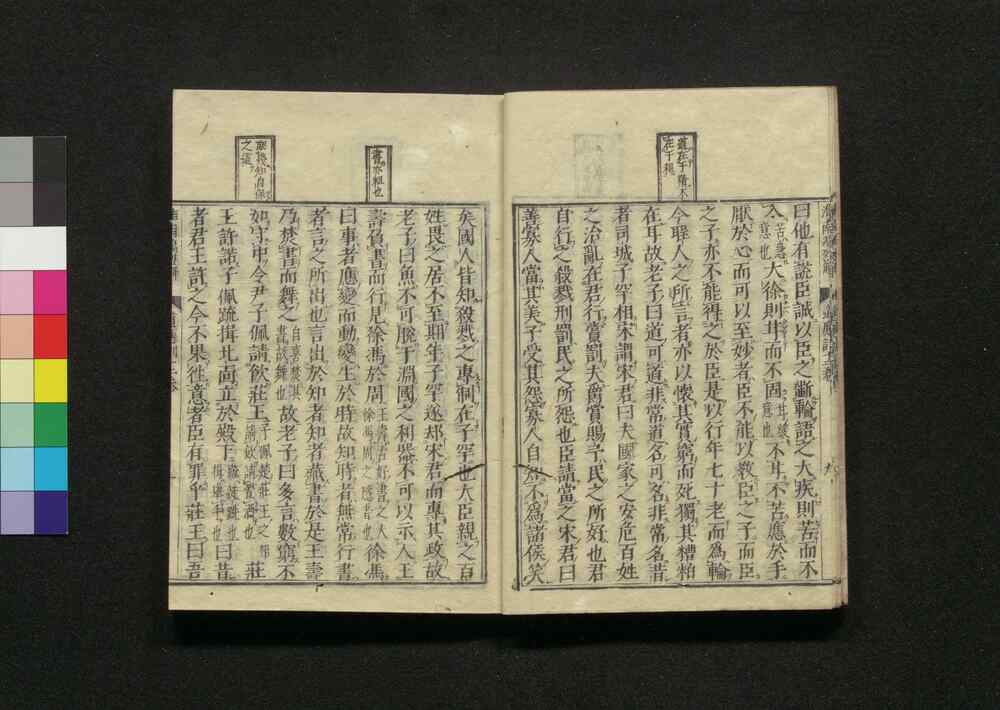 道在于精不
在于粗
曰他有說臣誠以臣之斵輪語之大疾則苦而不
入苦急意也大徐則甘而不固甘緩意也不甘不苦應於手
厭於心而可以至妙者臣不能以教臣之子而臣
之子亦不能得之於臣是以行年七十老而為輪
今聖人之所言者亦以懷其實窮而死獨其糟粕
在耳故老子曰道可道非常道名可名非常名昔
者司城子罕相宋謂宋君曰夫國家之安危百姓
之治亂在君行賞罰夫爵賞賜予民之所好也君
自行之殺戮刑罰民之所怨也臣請當之宋君曰
善寡人當其美子受其怨寡人自知不為諸侯笑
書亦粗也
知自保
之道
矣國人皆知殺戮之專制在子罕也大臣親之百
姓畏之居不至期年子罕遂却宋君而專其政故
老子曰魚不可脫于淵國之利器不可以示人王
壽負書而行見徐馮於周王壽古好書之人徐馮周之隱者也徐馮
曰事者應變而動變生於時故知時者無常行書
者言之所出也言出於知者知者藏書於是王壽
乃焚書而舞之自喜焚其書故舞也故老子曰多言數窮不
如守中令尹子佩請飲莊王子佩楚莊王之相請飲請置酒也莊
王許諾子佩疏揖北面立於殿下疏徒跣也揖舉手也曰昔
者君王許之今不果往意者臣有罪乎莊王曰吾